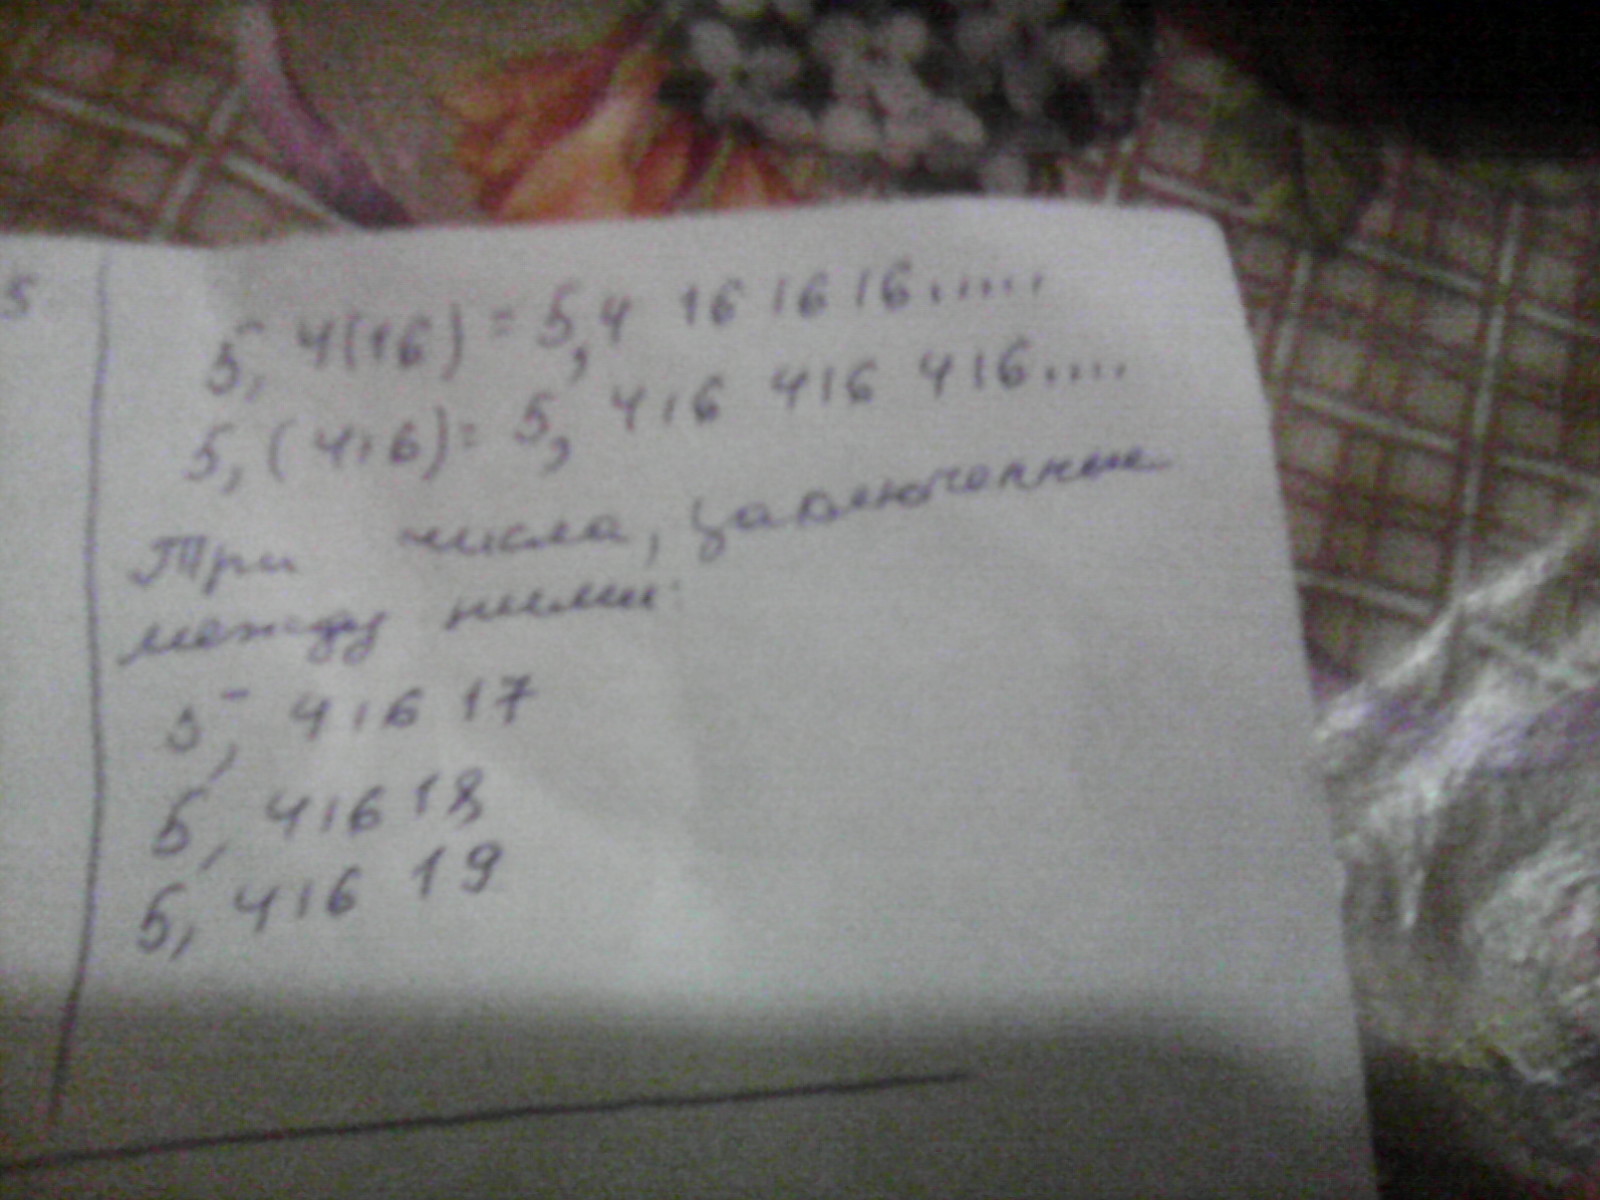 5
5, 4(16) = 5,4 16 16 16.....
5, (416) = 5, 416 416 416....
Три числа, заключенные
между ними:
5, 416 17
5, 416 18
5, 416 19